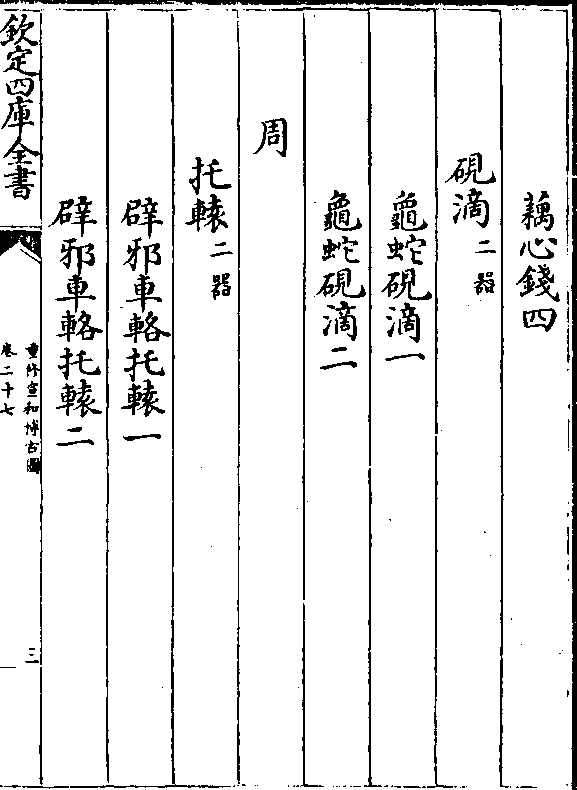 藕心錢四
硯滴二器
龜蛇硯滴一
龜蛇硯滴二
周
托轅二器
辟邪車輅托轅一
辟邪車輅托轅二
欽定四庫全書
重修宣和博古圖
卷二十七
三